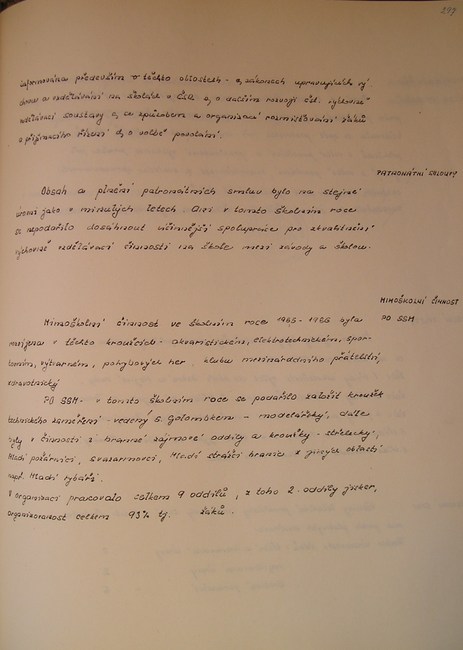 247
informována především o těchto oblastech - a, zákonech upravujících vý-
chovu a vzdělávání na školách v ČSR b, o dalším rozvoji čsl. výchovně
vzdělávací soustavy c, se způsobem a organizací rozmisťování žáků
a přijímacího řízení d, o volbě povolání.
PATRONÁTNÍ SMLOUVY
Obsah a plnění patronátních smluv bylo na stejné
úrovni jako v minulých letech. Ani v tomto školním roce
se nepodařilo dosáhnout účinnější spolupráce pro zkvalitnění
výchovně vzdělávací činnosti na škole mezi závody a školou.
MIMOŠKOLNÍ ČINNOST
PO SSM
Mimoškolní činnost ve školním roce 1985-1986 byla
rozvíjena v těchto kroužcích - akvaristickém, elektrotechnickém, spor-
tovním, výtvarném, pohybových her, klubu mezinárodního přátelství,
zdravotnický
PO SSM - v tomto školním roce se podařilo založit kroužek
technického zaměření - vedený s. Golombkem - modelářský, dále
byly v činnosti z branné zájmové oddíly a kroužky - střelecký,
Mladí požárníci, svazarmovci, Mladí strážci hranic z jiných oblastí
např. Mladí rybáři.
V organizaci pracovalo celkem 9 oddílů, z toho 2 oddíly jisker,
organizovanost celkem 93% tj. žáků.